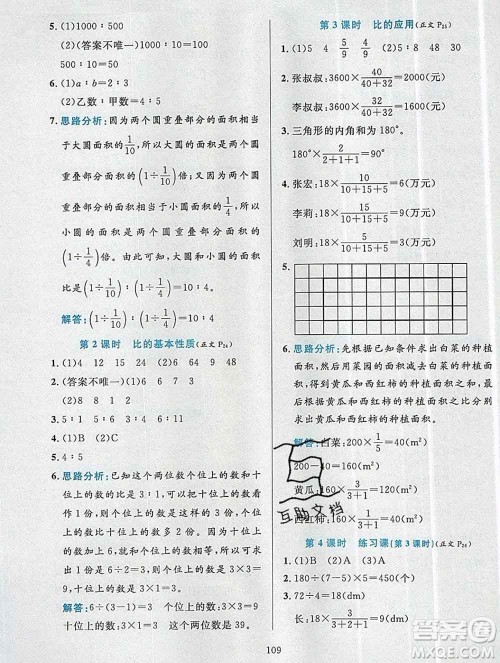 5. (1)1000∶500
(2)(答案不唯一)1000∶10=100∶1
500∶10=50∶1
6. (1)a∶b=2∶3
(2)乙数∶甲数=4∶3
7. 思路分析:因为两个圆重叠部分的面积相
当于大圆面积的1/10,所以大圆的面积是
重叠部分面积的(1÷1/10)倍。又因为两个
圆重叠部分的面积相当于小圆面积的1/4,所以
小圆的面积是两个圆重叠部分面积的
(1÷1/4)倍。因此大圆和小圆的面积比是
(1÷1/10)∶(1÷1/4)=10∶4
解答:(1÷1/10)∶(1÷1/4)=10∶4
第2课时 比的基本性质(正文P24)
1. (1)6 7 (2)6 64 9 48
2. (答案不唯一)
3. 5∶8 1∶5 1∶3 4∶1 6∶11
4. (1)B (2)C
5. 4∶5
6. 思路分析:已知这个两位数个位上的数和十
位上的数的比是3∶1,把十位上的数看
作1份,则个位上的数是3份,个位上的
数比十位上的数多2份。因为个位上的
数比十位上的数大6,所以1份是6÷2=3,
十位上的数是3×1=3,个位上的数是3×3=9
解答:6÷(3-1)=3 个位上的数是3×3=9
十位上的数是3×1=3 这个两位数是39。
第3课时 比的应用(正文P25)
1. (1)5 4 5/9 4/9 (2)5 8 48 30
2. 张叔叔:3600×40/(40+32)=2000(元)
李叔叔:3600×32/(40+32)=1600(元)
3. 三角形的内角和为180°。
180°×2/(2+1+1)=90°
4. 张宏:18×10/(10+15+5)=6(万元)
李莉:18×15/(10+15+5)=9(万元)
刘明:18×5/(10+15+5)=3(万元)
5.
6. 思路分析:先根据已知条件求出白菜的种植面
积,然后用菜园的面积减去白菜的种植面积,
得到黄瓜和西红柿的种植面积之和,最后根据
黄瓜和西红柿的种植面积之比分别求出
黄瓜和西红柿的种植面积。
解答:白菜:200×1/5=40(m²)
200-40=160(m²)
黄瓜:160×3/(3+1)=120(m²)
西红柿:160×1/(3+1)=40(m²)
第4课时 练习课(第3课时)(正文P26)
1. (1)B (2)A
2. 180÷(7-5)×5=450(个)
3. (1)160÷4÷(3+2)=8(dm)
8×3=24(dm) 8×2=16(dm)
109
互助文档
答案圈
MXQE.COM